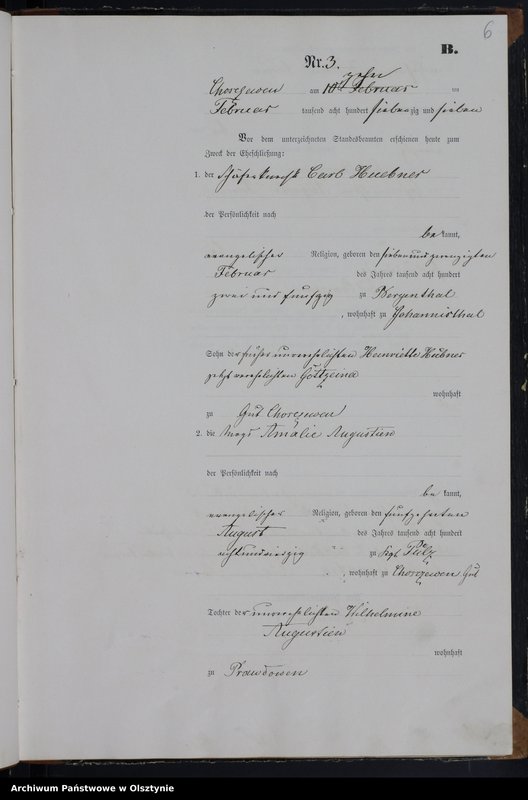 6
B.
Nr. 3.
zehn
Chorczewen am 10 Februar
Februar tausend acht hundert siebenzig und sieben
Vor dem unterzeichneten Standesbeamten erschienen heute zum
Zweck der Eheschließung:
1. der Schäferknecht Carl Huebner
der Persönlichkeit nach
be kannt,
evangelischer Religion, geboren den sieben und zwanzigsten
Februar des Jahres tausend acht hundert
zwei und fünfzig zu Bergenthal
, wohnhaft zu Johannisthal
Sohn der früher unverehelichten Henriette Hübner
jetzt verehelichten
wohnhaft
zu Gut Chorczewen
2. die Magd Amalie Augustien
der Persönlichkeit nach
be kannt,
evangelischer Religion, geboren den fünfzehnten
August des Jahres tausend acht hundert
achtundvierzig zu Kgl.
, wohnhaft zu Chorczewen Gut
Tochter der unverehelichten Wilhelmine
Augustien
wohnhaft
zu Prawdowen
Archiwum Państwowe w Olsztynie